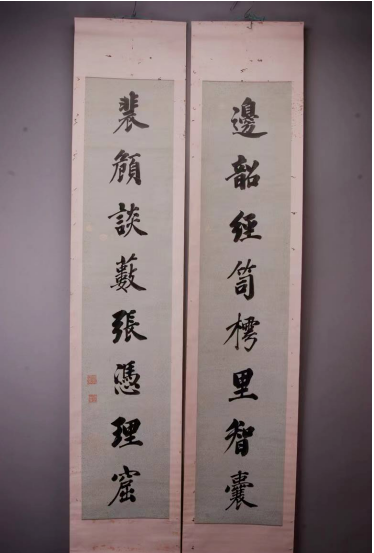 邊韶經笥樗里智囊
裴頠談藪張憑理窟